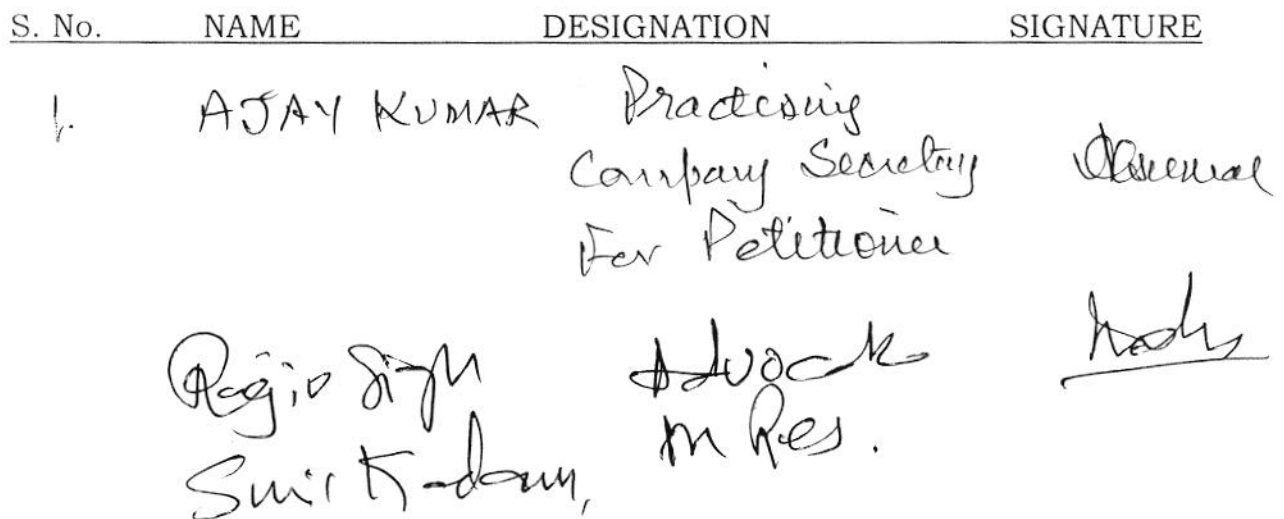 S. No. NAME DESIGNATION SIGNATURE
1. AJAY KUMAR Practising
Company Secretary
For Petitioner
Rajiv Singh Advocate
Res.